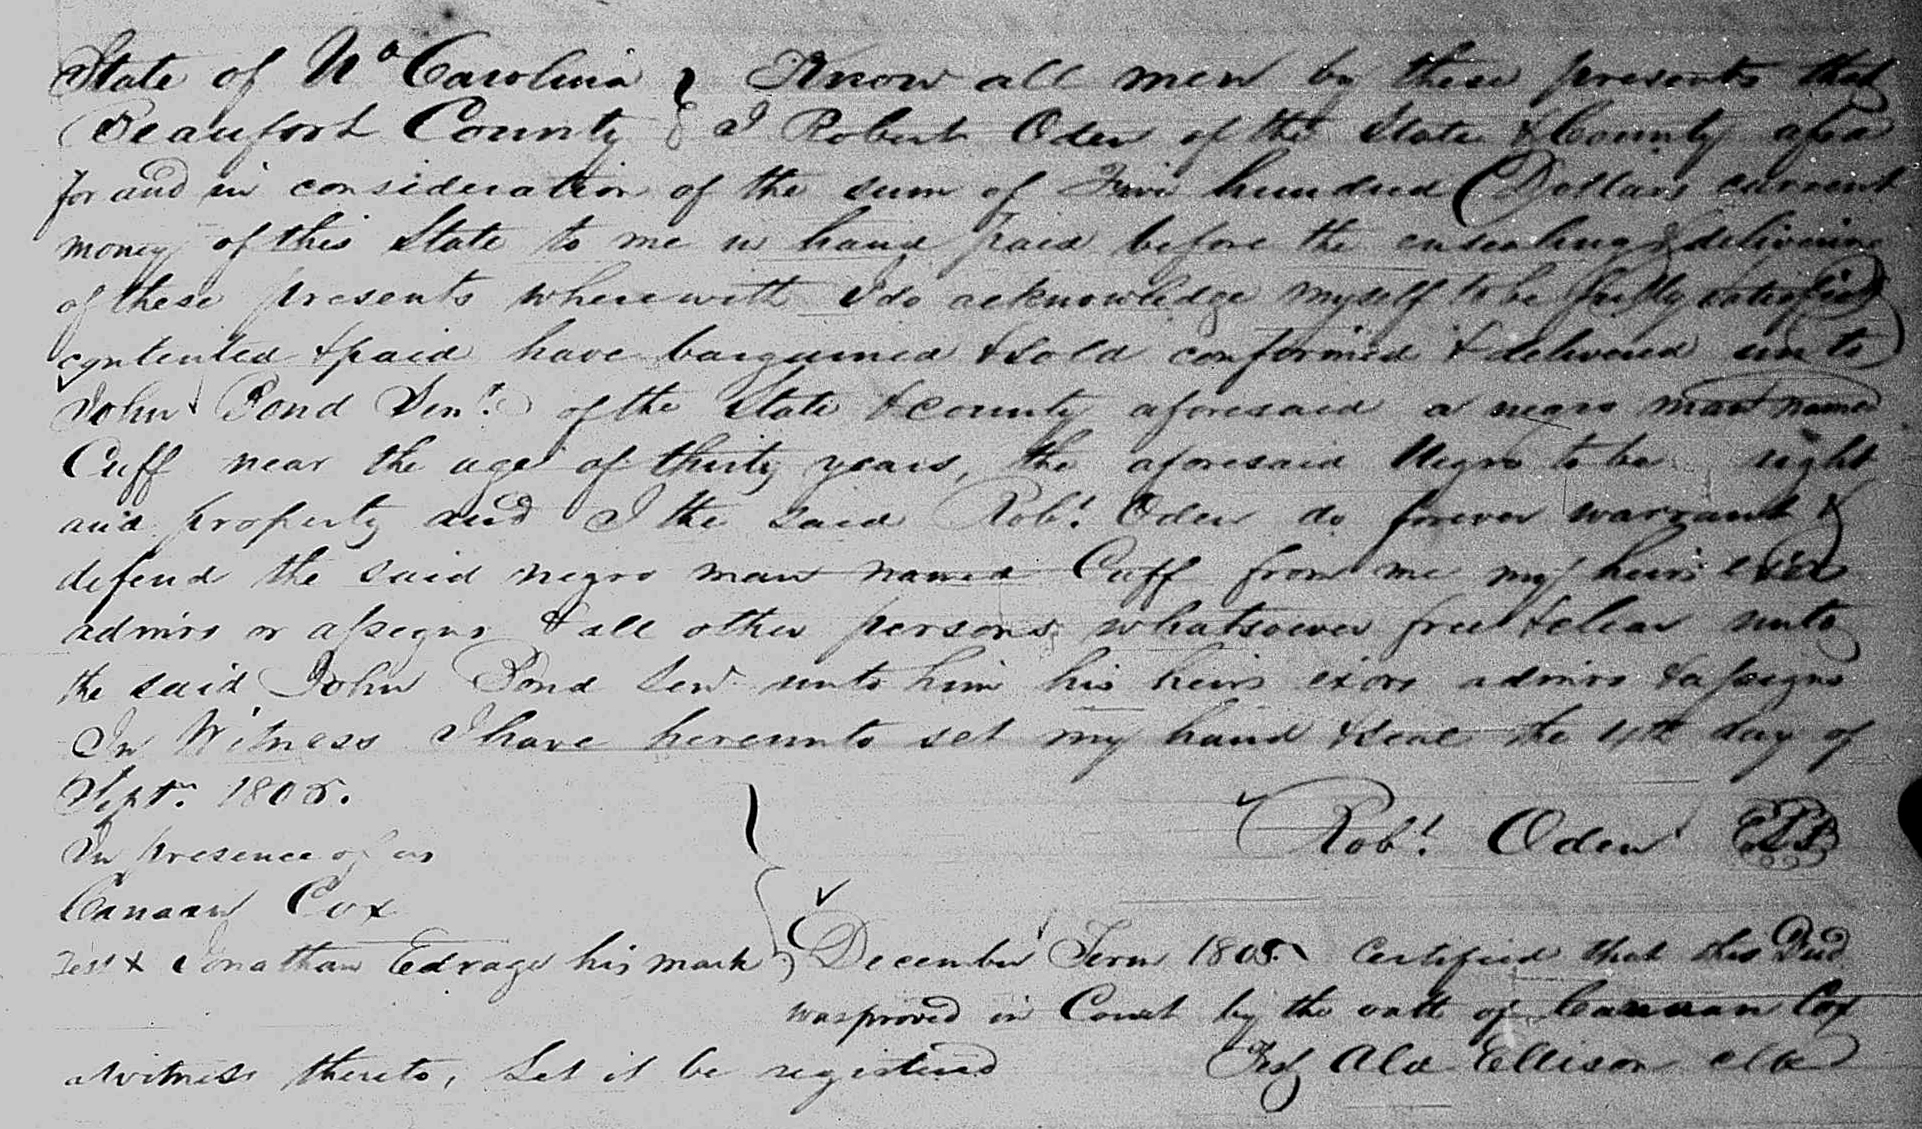 State of No Carolina } Know all men by these presents that
Beaufort County } I Robert Oden of the State & County afsd
for and in consideration of the sum of Five hundred Dollars current
money of this State to me in hand paid before the ensealing & delivering
of these presents wherewith I do acknowledge myself to be fully satisfied
contented & paid have bargained & sold conformed & delivered unto
John Pond Senr. of the State & county aforesaid a negro man named
Cuff near the age of thirty years, the aforesaid Negro to be right
and property and I the said Robt. Oden do forever warrant &
defend the said negro man named Cuff from me my heirs exors
admirs or assigns & all other persons whatsoever free & clear unto
the said John Pond Senr unto him his heirs exors admirs & assigns
In Witness I have hereunto set my hand & seal the 4th day of
Septr. 1805.
In presence of us
Robt. Oden
Canaan Cox
Test X Jonathan Edrage his mark
December Term 1805. Certified that this Deed
was proved in Court by the oath of Canaan Cox
a witness thereto, Let it be registered Test Alex Ellison clk